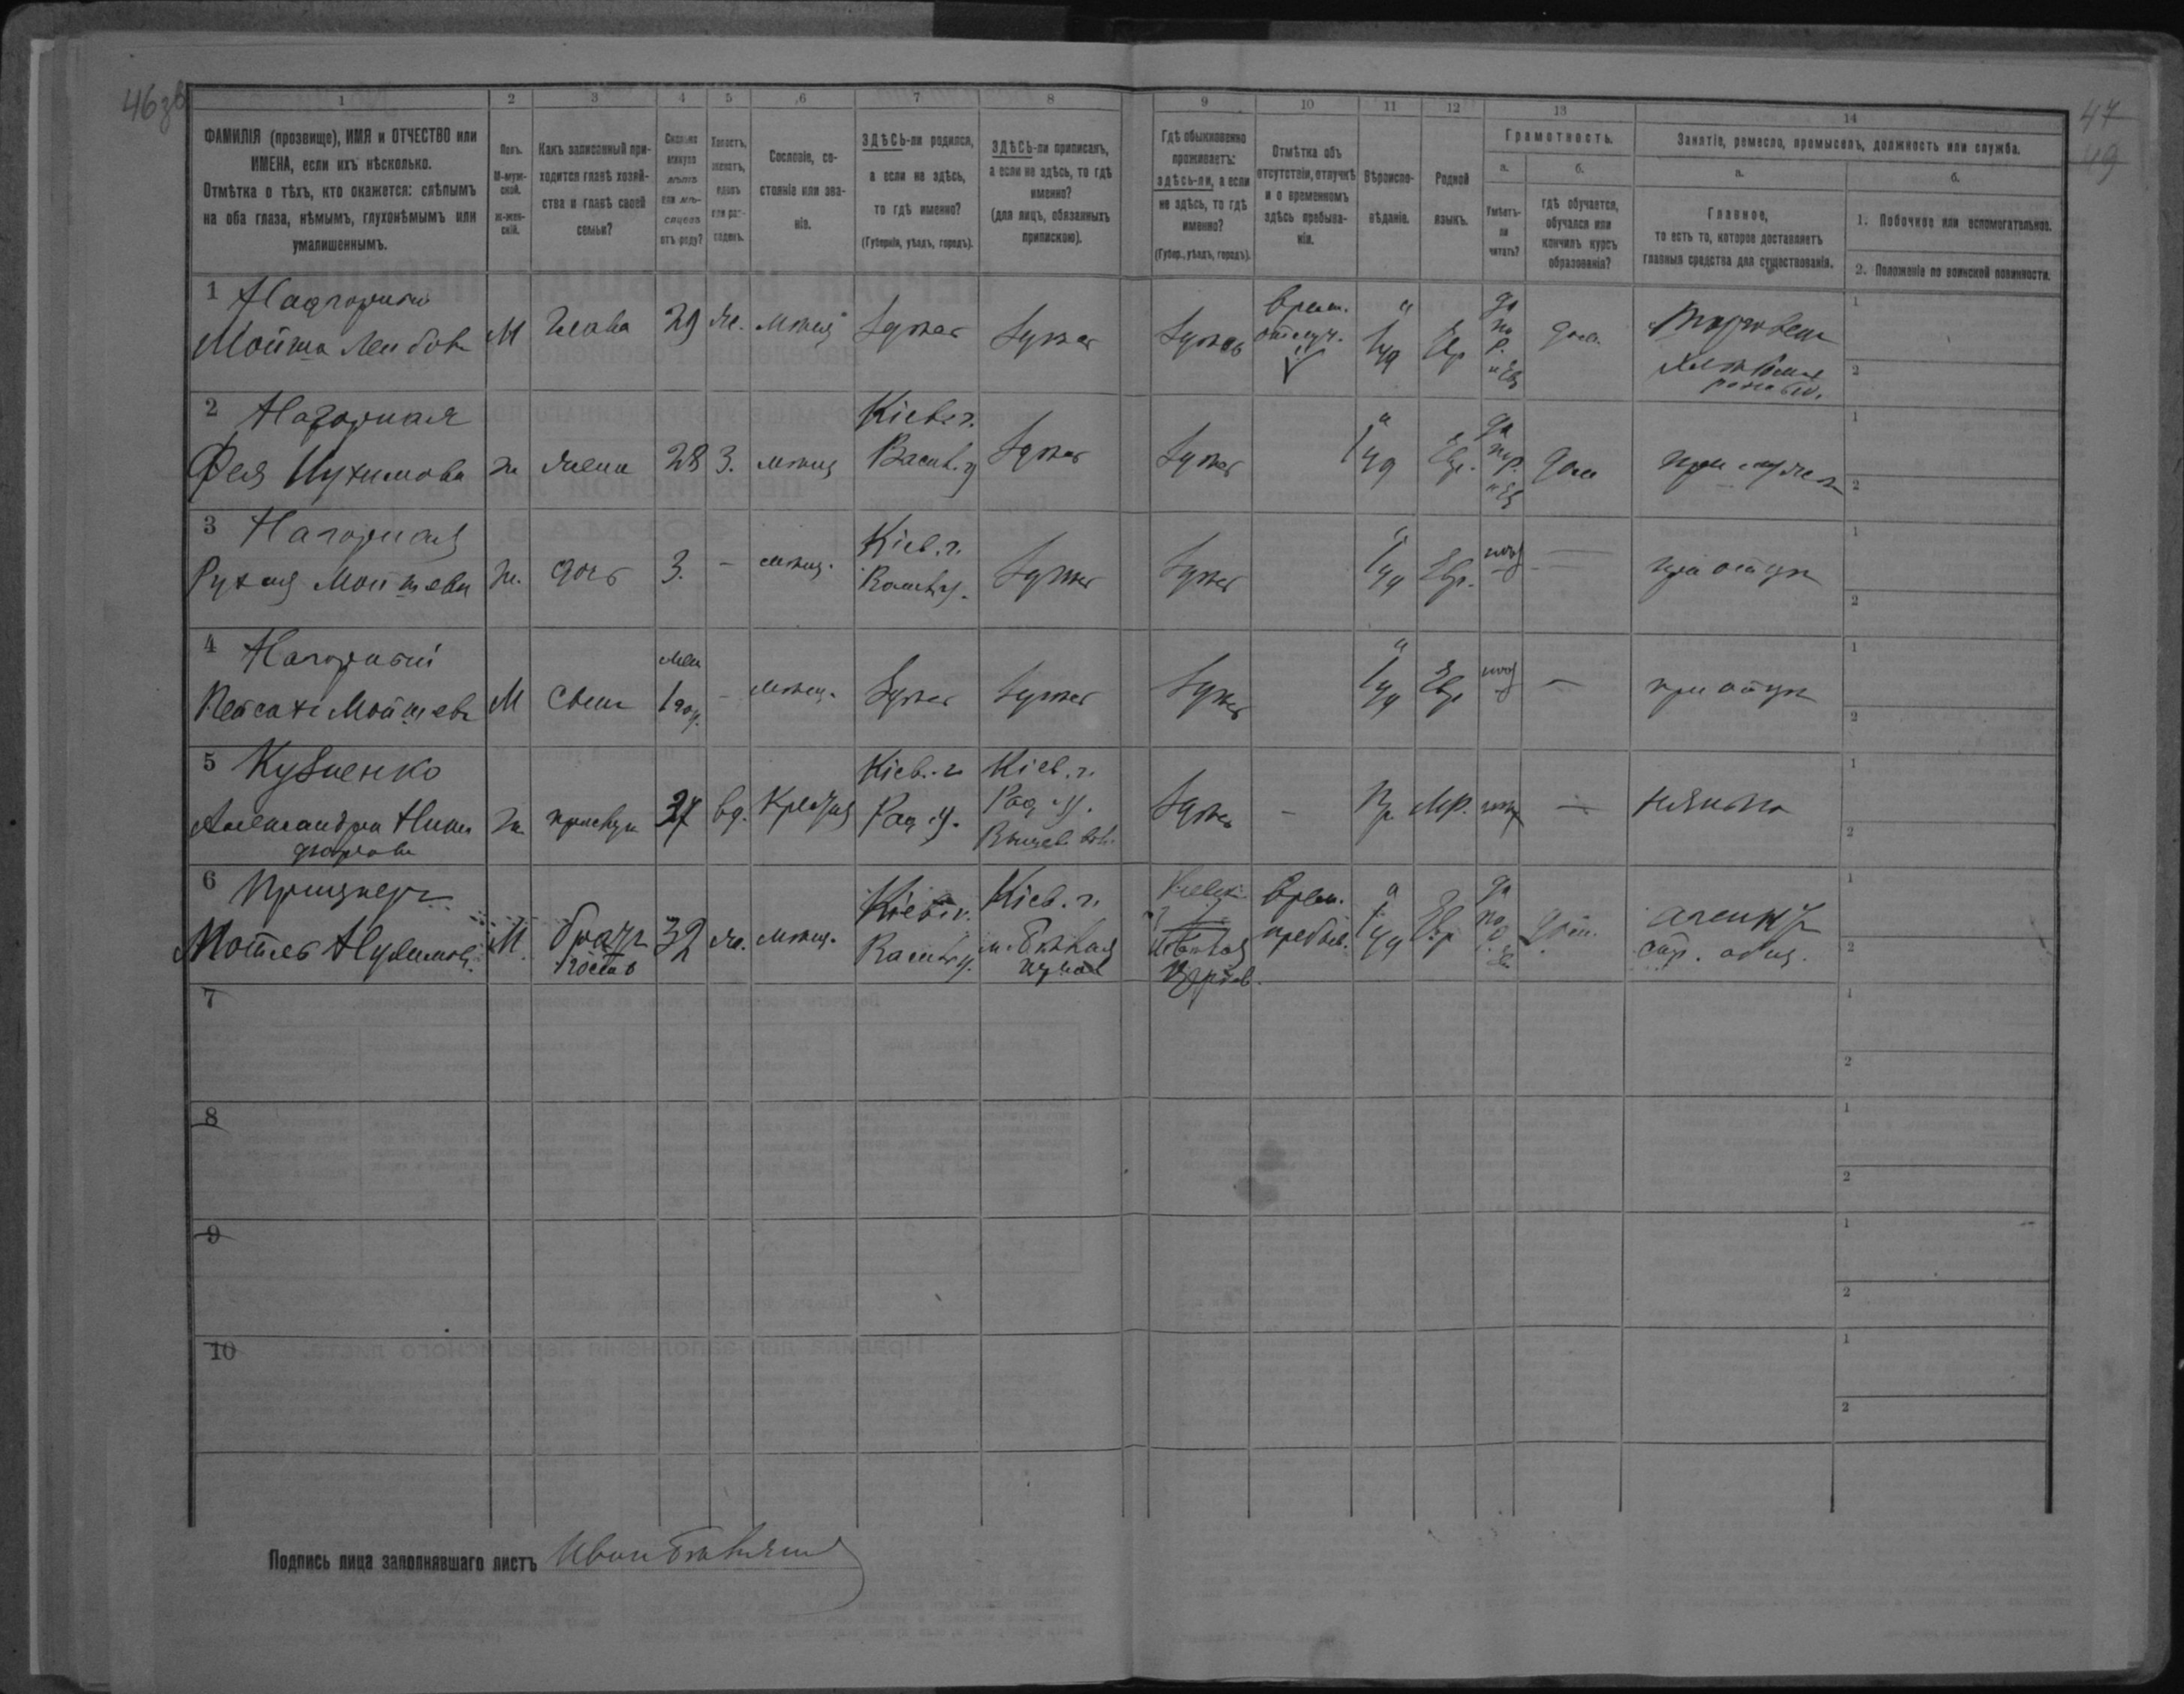 46 зв
47
49
1
2
3
4
5
6
7
8
9
10
11
12
13
14
ФАМИЛІЯ (прозвище), ИМЯ и ОТЧЕСТВО или
ИМЕНА, если ихъ нѣсколько.
Отмѣтка о тѣхъ, кто окажется: слѣпымъ
на оба глаза, нѣмымъ, глухонѣмымъ или
умалишеннымъ.
Полъ.
М-муж-
ской.
ж-жен-
скій.
Какъ записанный при-
ходится главѣ хозяй-
ства и главѣ своей
семьи?
Сколько
минуло
лѣтъ
или мѣ-
сяцевъ
отъ роду?
Холостъ,
женатъ,
вдовъ
или раз-
веденъ.
Сословіе, со-
стояніе или зва-
ніе.
ЗДѢСЬ-ли родился,
а если не здѣсь,
то гдѣ именно?
(Губернія, уѣздъ, городъ).
ЗДѢСЬ-ли приписанъ,
а если не здѣсь, то гдѣ
именно?
(для лицъ, обязанныхъ
припискою).
Гдѣ обыкновенно
проживаетъ:
здѣсь-ли, а если
не здѣсь, то гдѣ
именно?
(Губер., уѣздъ, городъ).
Отмѣтка объ
отсутствіи, отлучкѣ
и о временномъ
здѣсь пребыва-
ніи.
Вѣроиспо-
вѣданіе.
Родной
языкъ.
Грамотность.
а.
Умѣетъ-
ли
читать?
б.
гдѣ обучается,
обучался или
кончилъ курсъ
образованія?
Занятіе, ремесло, промыселъ, должность или служба.
а.
Главное,
то есть то, которое доставляетъ
главныя средства для существованія.
б.
1. Побочное или вспомогательное.
2. Положеніе по воинской повинности.
1
Мойша Лейбовъ
М
Глава
29
же.
мѣщ
Здѣсь
Здѣсь
Здѣсь
врем.
отлуч.
Іуд
Евр
да
по
р.
и Ев
дом.
Торговецъ
1
2
2 Нагорная
Фея Нухимова
ж
жена
28
з.
мѣщ
Кіев. г.
Васил. у
Здѣсь
Здѣсь
Іуд
Евр.
да
по р.
и Ев
дом
при мужѣ
1
2
3 Нагорная
Рухля Мойшева
ж.
дочь
3.
-
мѣщ.
Кіев. г.
Васил у.
Здѣсь
Здѣсь
Іуд
Евр.
—
при отцѣ
1
2
4 Нагорный
Пейсахъ Мойшевъ
М
Сынъ
1 год.
-
мѣщ.
Здѣсь
Здѣсь
Здѣсь
Іуд
Евр
—
при отцѣ
1
2
5 Кузменко
Александра Ники
форова
ж.
прислуга
37
вд.
Крестья
Кіев. г.
Рад. у.
Кіев. г.
Рад. у.
Здѣсь
-
Пр
М.Р.
—
нянька
1
2
6
Мотель Нухимов.
М.
братъ
гость
32
же.
мѣщ.
Кіев. г.
Васил у.
Кіев. г.
м. Бѣлая
церковь
Бѣлая
Церков.
Врем.
преб.
Іуд
Евр
да
по
дом.
агентъ
стр. общ.
1
2
7
1
2
8
1
2
9
1
2
10
1
2
Подпись лица заполнявшаго листъ Иван